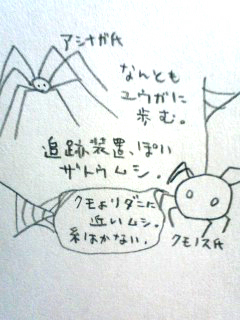 アシナガ氏
なんとも
ユウガに
歩む。
追跡装置、ぽい
ザトウムシ.
クモよりダニに
近いムシ.
糸はかない.
クモノス氏